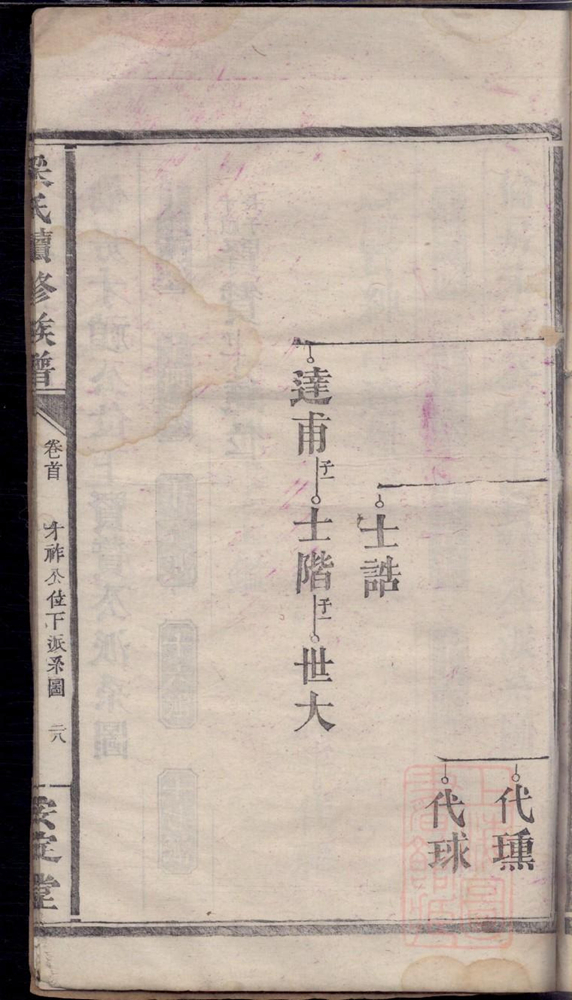 代㻽
代球
士誥
達甫子一士階子一世大
氏續修族譜
卷首
才祚公位下派系圖
二八
安定堂